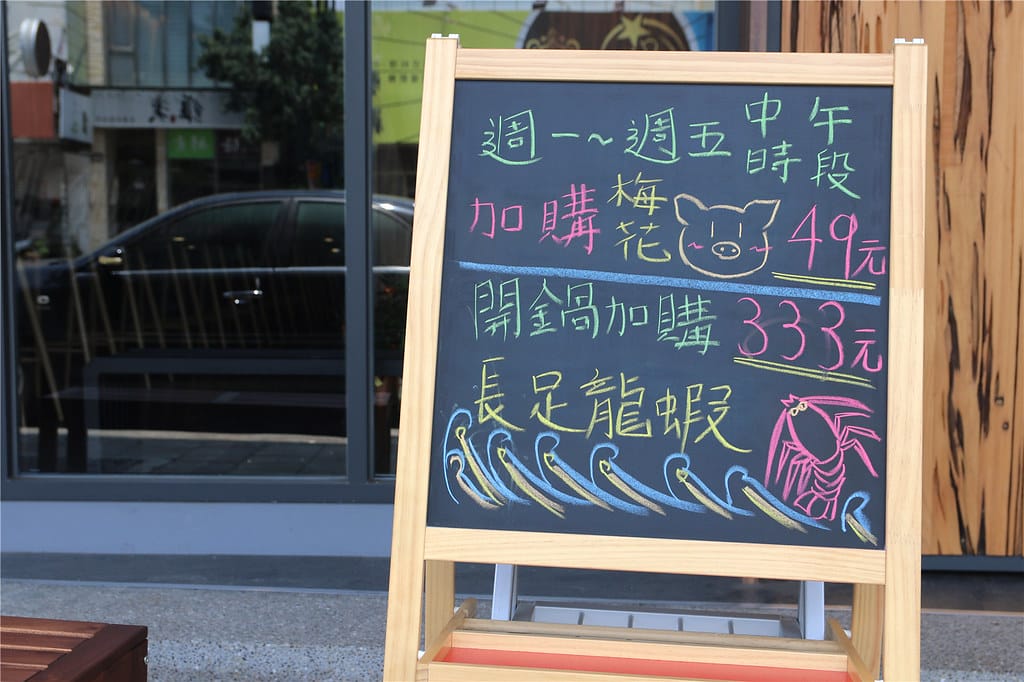 週一~週五中午時段
加購梅花49元
開鍋加購333元
長足龍蝦